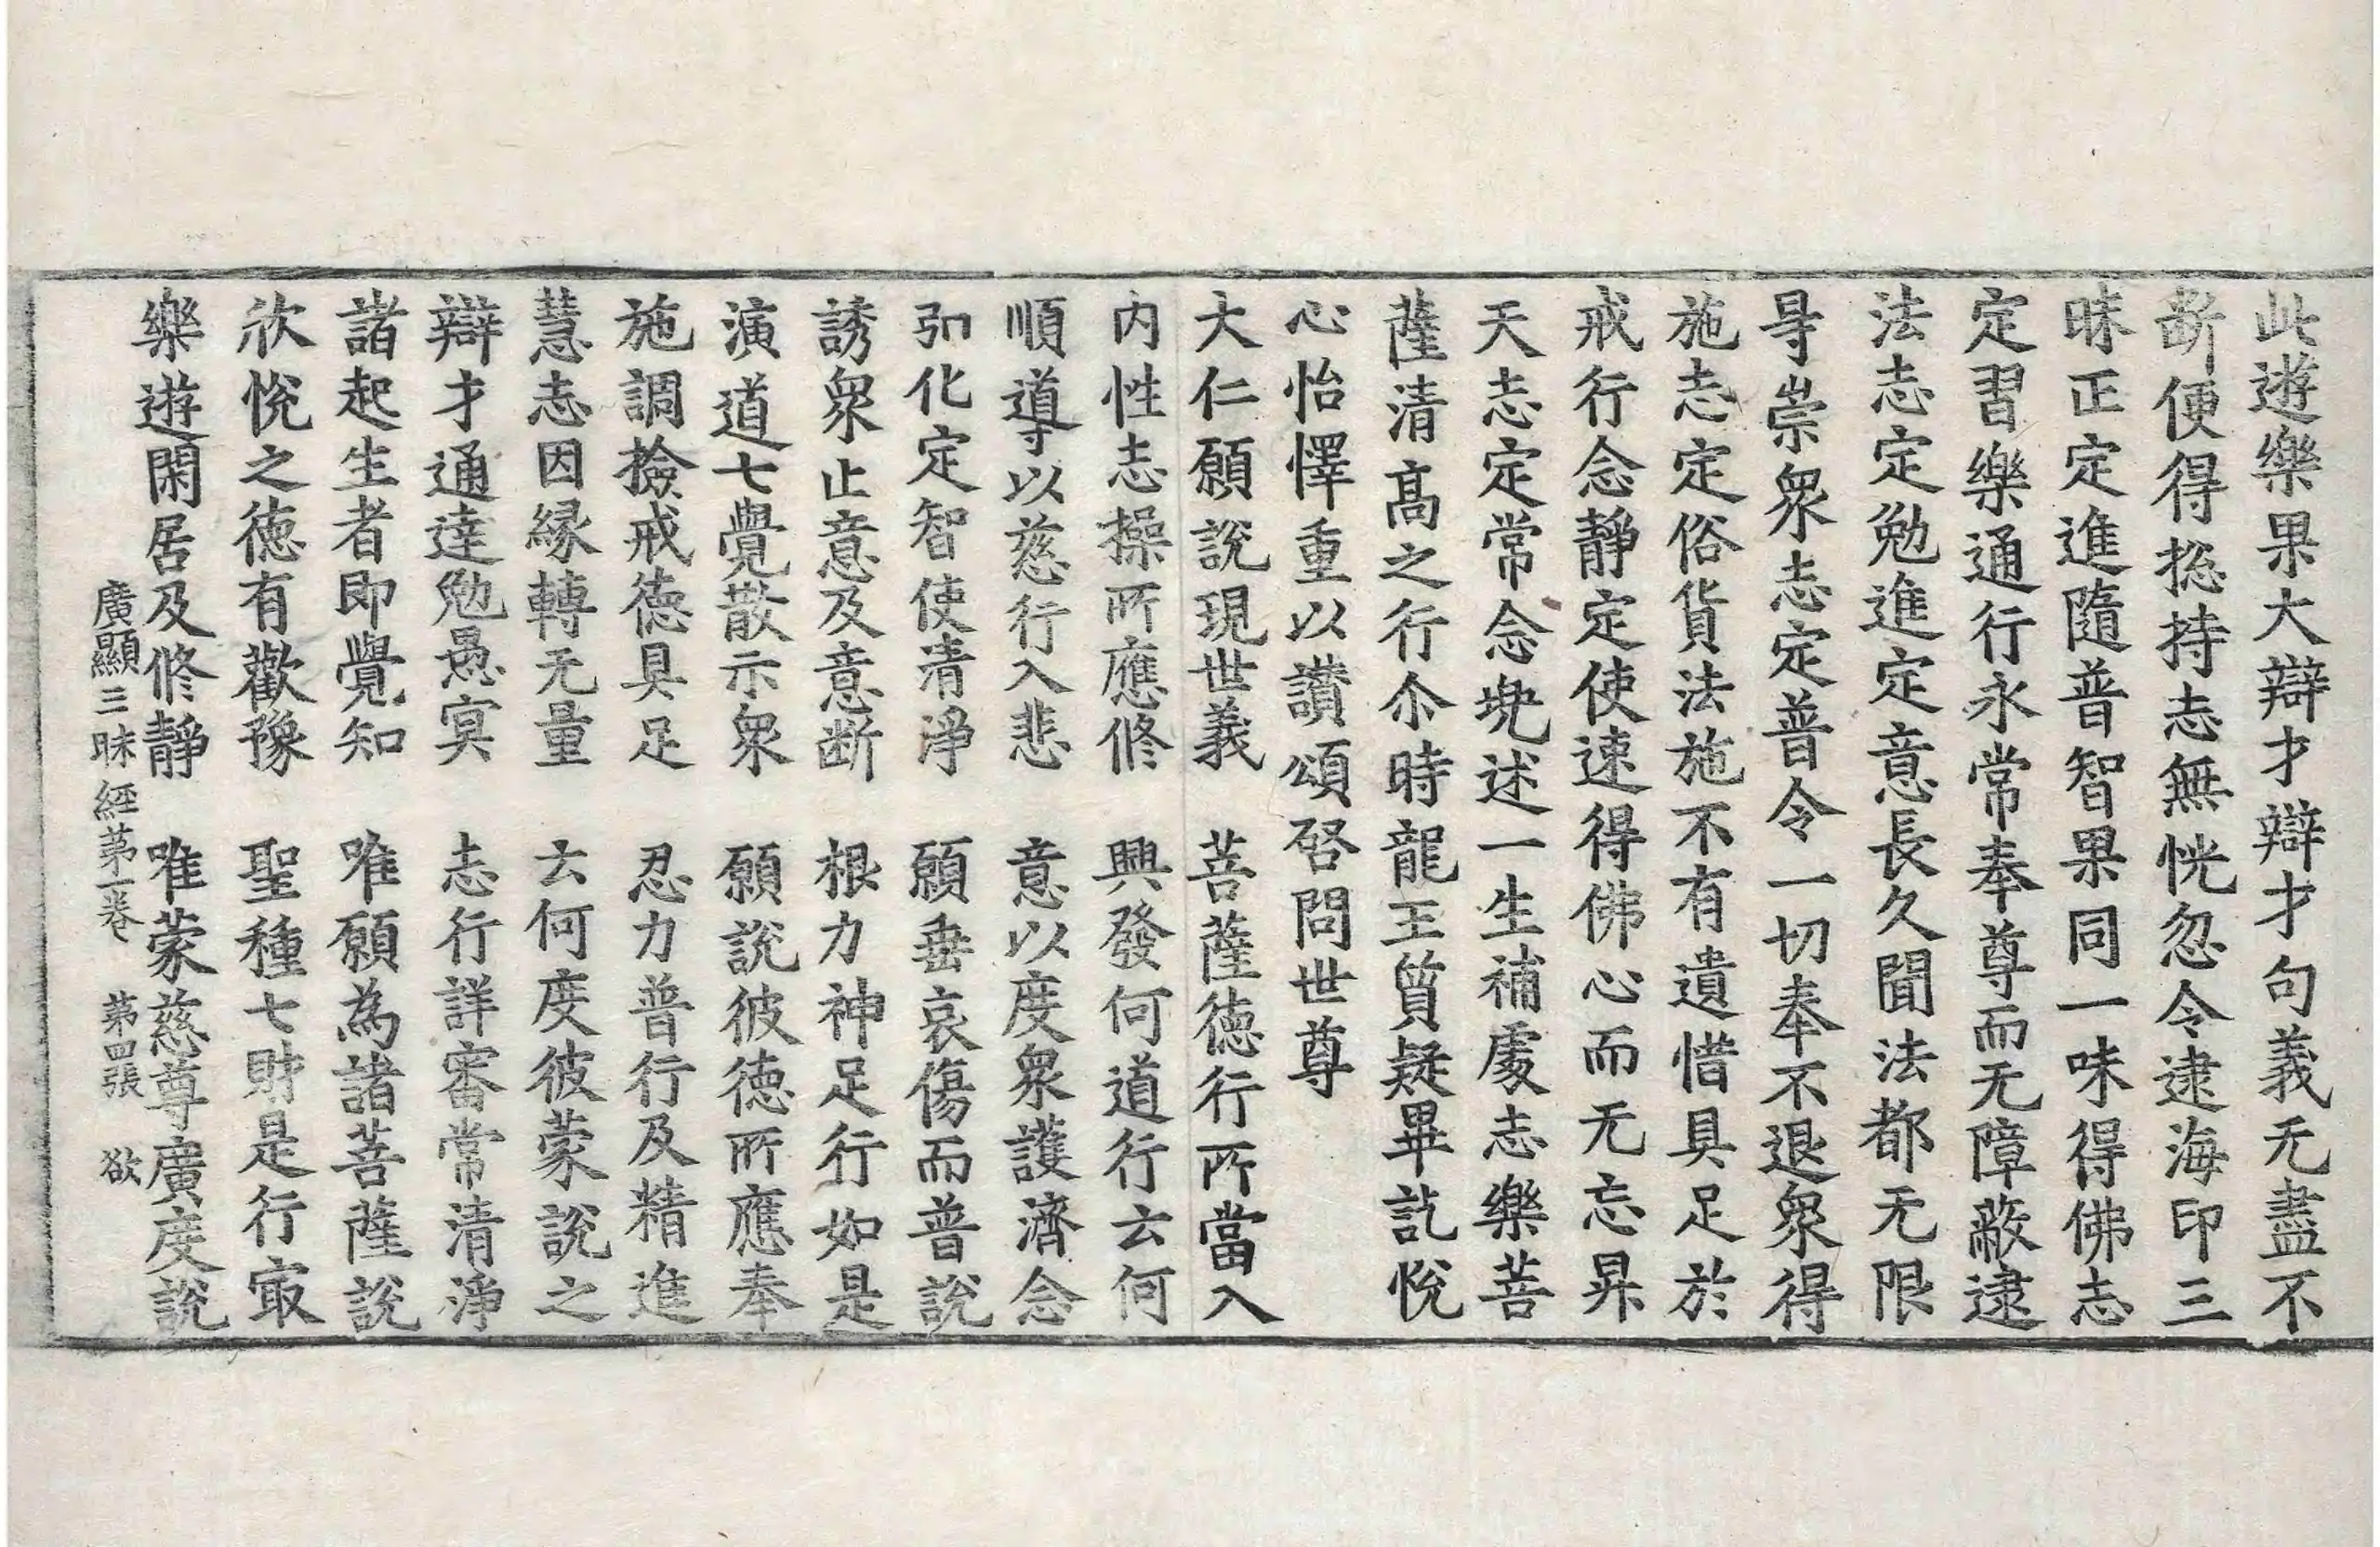 此遊樂果大辯才辯才句義无盡不
断便得捴持志無恍忽令逮海印三
昧正定進隨普智果同一味得佛志
定習樂通行永常奉尊而无障蔽逮
法志定勉進定意長久聞法都无限
㝵崇衆志定普令一切奉不退衆得
施志定俗貨法施不有遺惜具足於
戒行念靜定使速得佛心而无忘昇
天志定常念兠述一生補處志樂菩
薩清髙之行尒時龍王質疑畢訖恱
心怡懌重以讃頌啓問世尊
大仁願說現世義　菩薩德行所當入
内性志操所應修　興發何道行云何
順導以慈行入悲　意以度衆護濟念
引化定智使清淨　願垂哀傷而普說
誘衆止意及意断　根力神足行如是
演道七覺散示衆　願說彼德所應奉
施調撿戒德具足　忍力普行及精進
慧志因緣轉无量　云何度彼蒙說之
辯才通達勉愚冥　志行詳審常清淨
諸起生者即覺知　唯願為諸菩薩說
欣恱之德有歡豫　聖種七財是行㝡
樂遊閑居及修靜　唯蒙慈尊廣度說
廣顯三昧經第一卷　第四張　欲